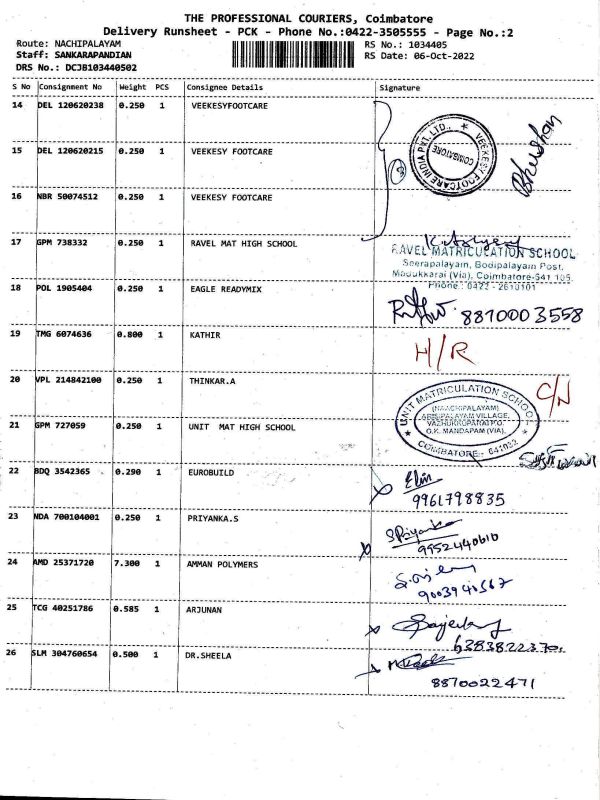 THE PROFESSIONAL COURIERS, Coimbatore
Delivery Runsheet - PCK - Phone No.:0422-3505555 - Page No.:2
Route: NACHIPALAYAM
RS No.: 1034405
Staff: SANKARAPANDIAN
RS Date: 06-Oct-2022
DRS No.: DCJB103440502
S No Consignment No Weight PCS Consignee Details Signature
14 DEL 120620238 0.250 1 VEEKESYFOOTCARE
VEEKESY FOOTCARE INDIA PVT. LTD.,
COIMBATORE
Bhushan
15 DEL 120620215 0.250 1 VEEKESY FOOTCARE
3
16 NBR 50074512 0.250 1 VEEKESY FOOTCARE
17 GPM 738332 0.250 1 RAVEL MAT HIGH SCHOOL
RAVEL MATRICULATION SCHOOL
Seerapalayam, Bodipalayam Post,
Madukkarai (Via), Coimbatore-641 105.
Phone: 0422 - 2610101
18 POL 1905404 0.250 1 EAGLE READYMIX
8810003558
19 TMG 6074636 0.800 1 KATHIR
H/R
20 VPL 214842100 0.250 1 THINKAR.A
C/N
21 GPM 727059 0.250 1 UNIT MAT HIGH SCHOOL
UNIT MATRICULATION SCHOOL
(NAACHIPALAYAM)
VAZHUKKUPARAI P.O.
G.K. MANDAPAM (VIA),
COIMBATORE- 641032
22 BDQ 3542365 0.290 1 EUROBUILD
9961798835
23 NDA 700104001 0.250 1 PRIYANKA.S
S.Priyanka
9952440610
24 AMD 25371720 7.300 1 AMMAN POLYMERS
9003941567
25 TCG 40251786 0.585 1 ARJUNAN
26 SLM 304760654 0.500 1 DR.SHEELA
8870022471